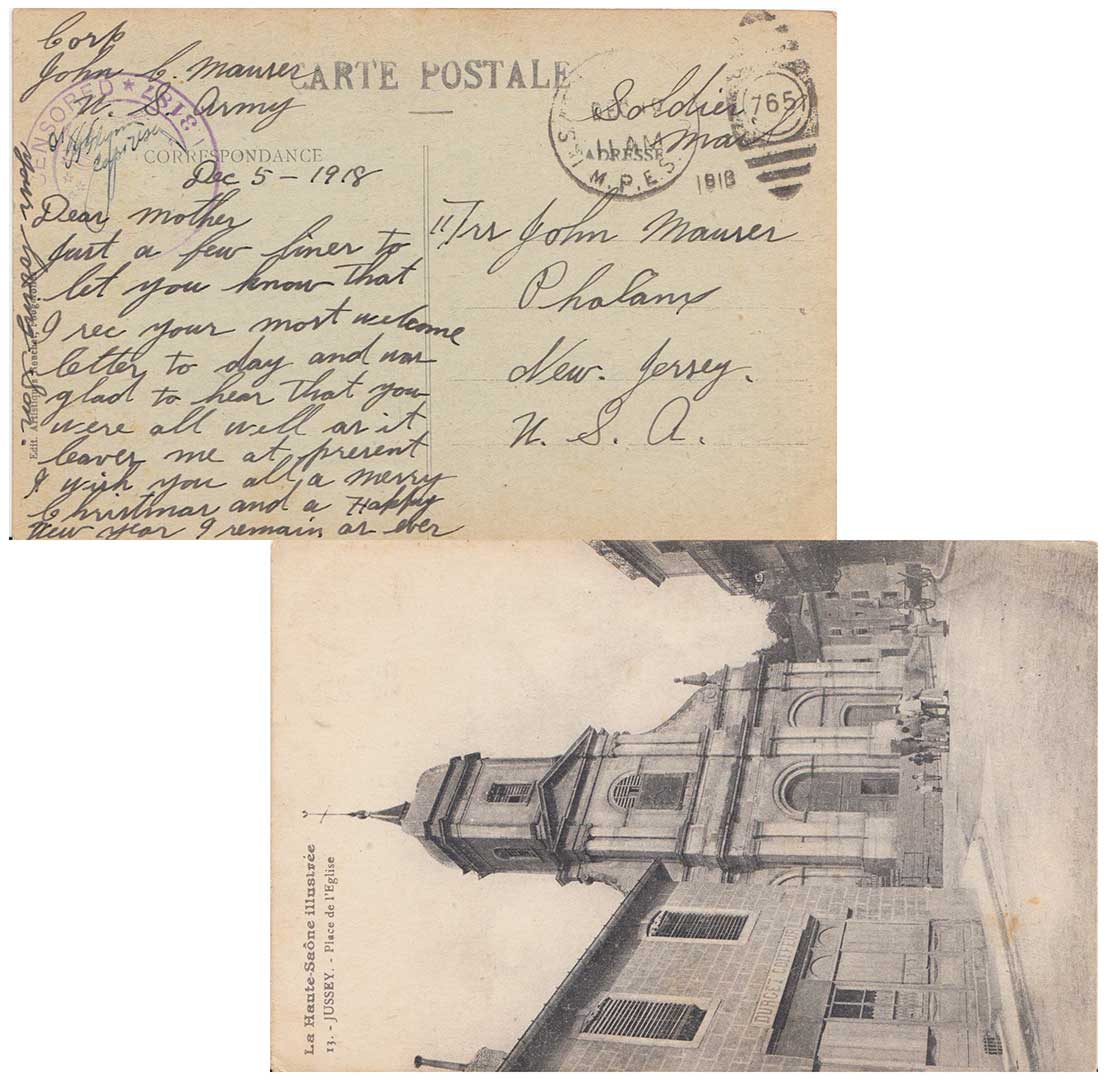 Corp
John C. Maurer
U. S. Army
CARTE POSTALE
CENSORED ★ 3187
Soldier
Mail
DEC
11 AM
M.P.E.S.
1918
765
CORRESPONDANCE
ADRESSE
Dec 5 - 1918
Dear mother
Just a few lines to
let you know that
I rec your most welcome
letter to day and was
glad to hear that you
were all well as it
leaves me at present
I wish you all a merry
Christmas and a Happy
New Year I remain as ever
your loving Son.
Mrs John Maurer
Phalanx
New. Jersey.
U. S. A.
La Haute-Saône illustrée
13. - JUSSEY. - Place de l'Eglise